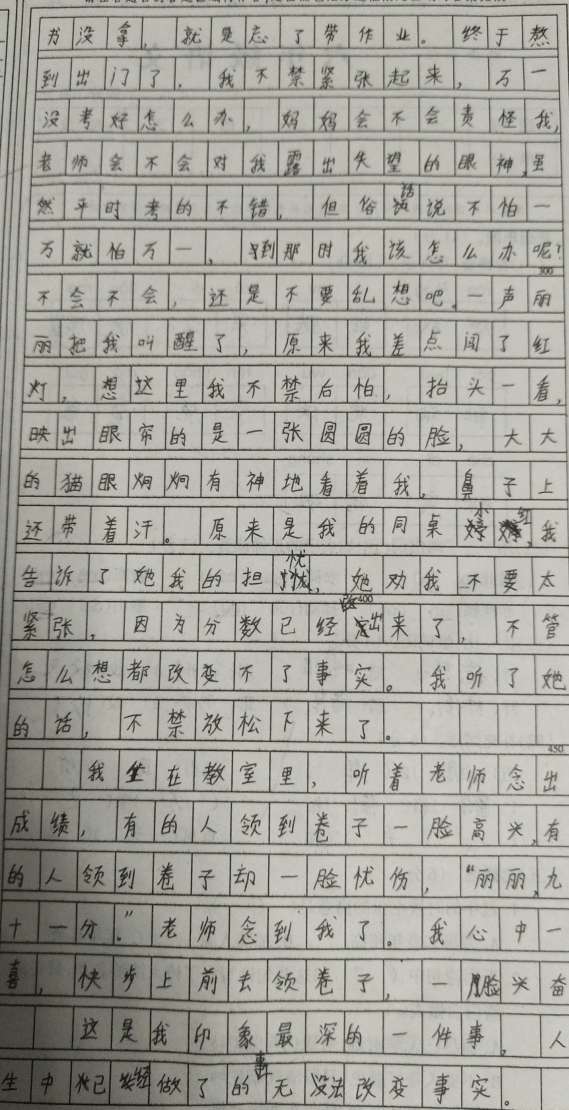 书没拿，就是忘了带作业。终于熬
到出门了，我不禁紧张起来，万一
没考好怎么办，妈妈会不会责怪我，
老师会不会对我露出失望的眼神，虽
然平时考的不错，但俗话说不怕一
万就怕万一，到那时我该怎么办呢？
300
不会不会，还是不要乱想吧。一声丽
丽把我叫醒了，原来我差点闯了红
灯，想这里我不禁后怕，抬头一看，
映出眼帘的是一张圆圆的脸，大大
的猫眼炯炯有神地看着我，鼻子上
还带着汗。原来是我的同桌小红，我
告诉了她我的担忧，她劝我不要太
400
紧张，因为分数已经出来了，不管
怎么想都改变不了事实。我听了她
的话，不禁放松下来了。
450
我坐在教室里，听着老师念出
成绩，有的人领到卷子一脸高兴，有
的人领到卷子却一脸忧伤，“丽丽，九
十一分。”老师念到我了。我心中一
喜，快步上前去领卷子，一脸兴奋
这是我印象最深的一件事。人
生中已经做了的事无法改变事实。